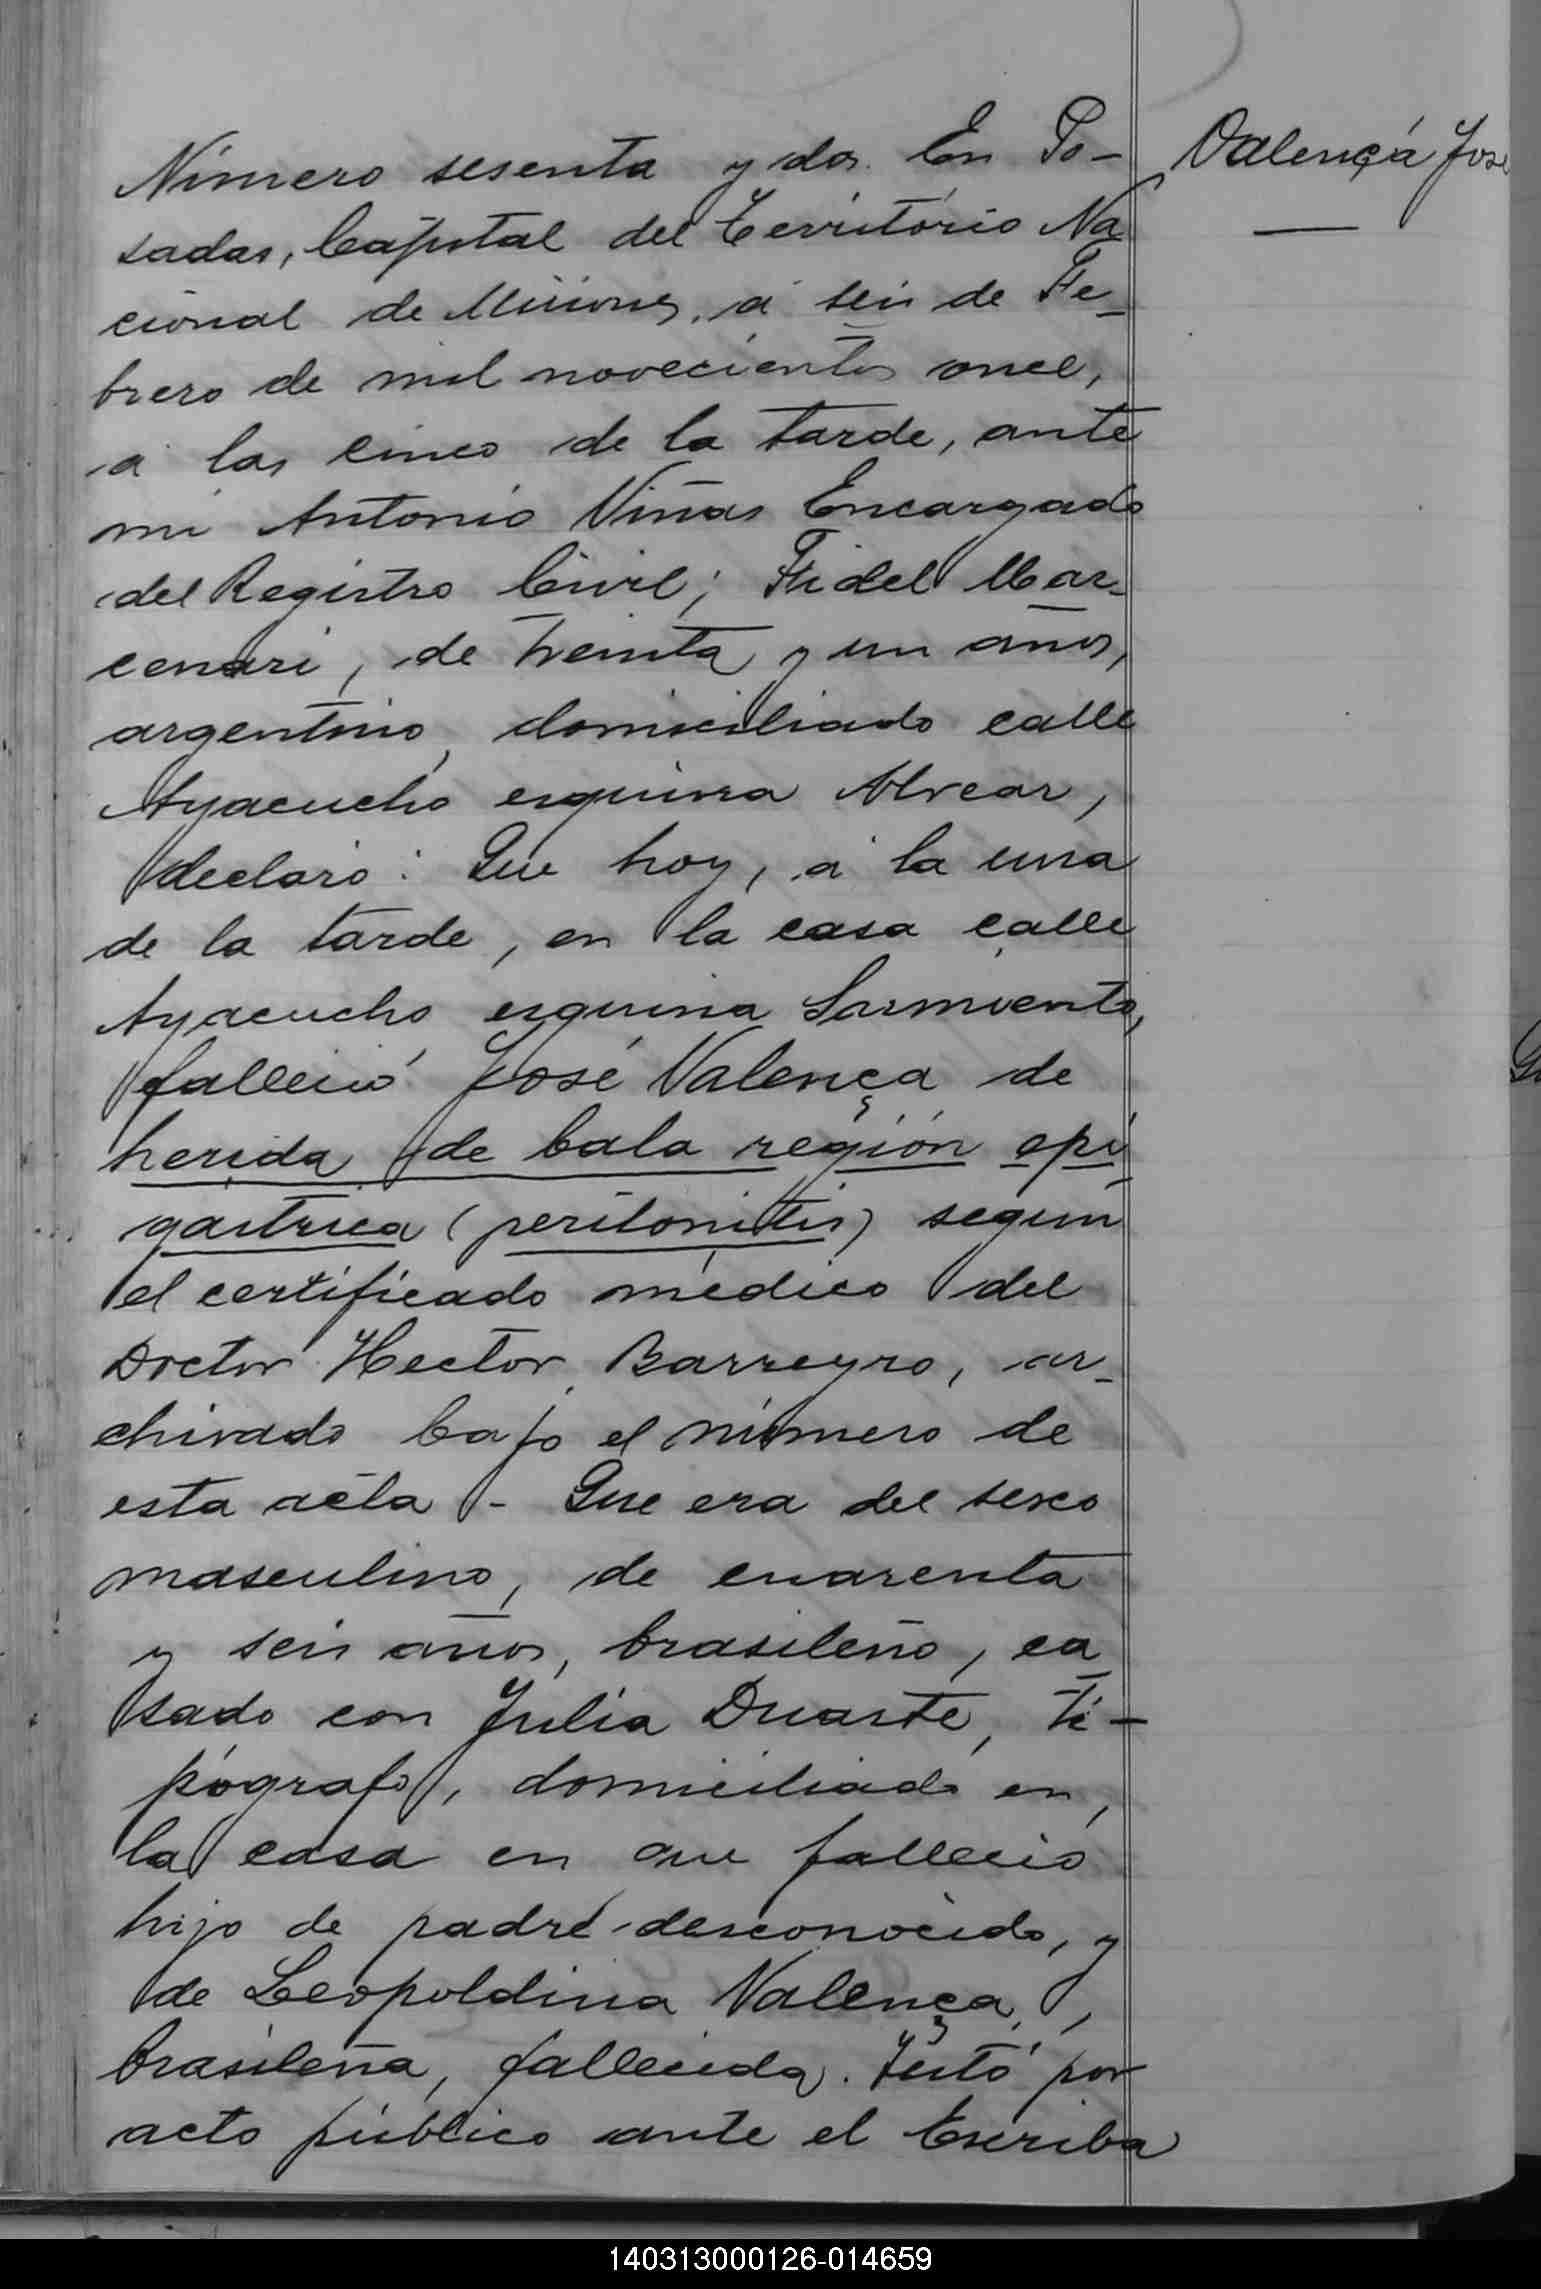 Número sesenta y dos. En Po-
sadas, Capital del Territorio Na
cional de Misiones, á seis de Fe-
brero de mil novecientos once,
á las cinco de la tarde, ante
mi Antonio Viñas Encargado
del Registro Civil; Fidel Mar-
cenari, de treinta y un años,
argentino, domiciliado calle
Ayacucho esquina Alvear,
declaró: Que hoy, á la una
de la tarde, en la casa calle
Ayacucho esquina Sarmiento,
falleció José Valença de
herida de bala región epi
gastrica (peritonitis) según
el certificado médico del
Doctor Hector Barreyro, ar-
chivado bajo el número de
esta acta - Que era del sexo
masculino, de cuarenta
y seis años, brasileño, ca
sado con Julia Duarte, ti-
pógrafo, domiciliado en
la casa en que falleció
hijo de padre desconocido, y
de Leopoldina Valença,
brasileña, fallecida. Testó por
acto público ante el Escriba
Valençá José
140313000126-014659